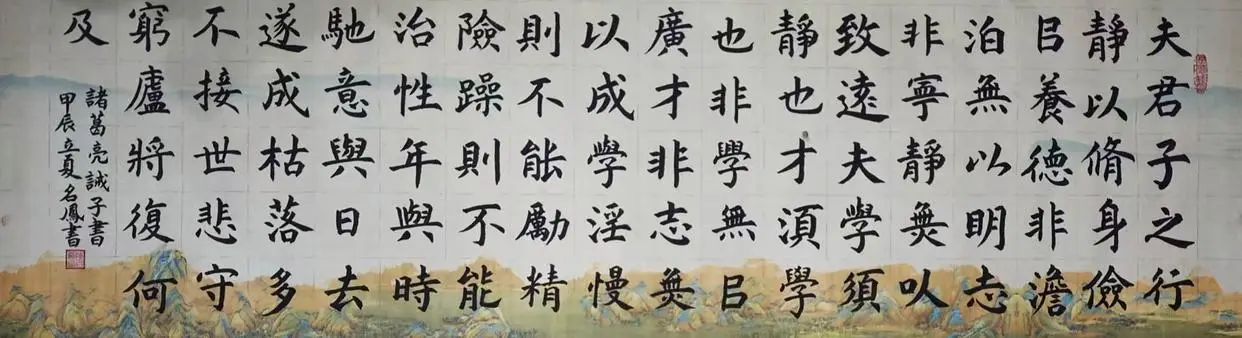 夫君子之行
靜以脩身儉
㠯養德非澹
泊無以明志
非寧靜無以
致遠夫學須
靜也才須學
也非學無㠯
廣才非志無
以成學淫慢
則不能勵精
險躁則不能
治性年與時
馳意與日去
遂成枯落多
不接世悲守
窮廬將復何
及
諸葛亮誡子書
甲辰立夏名鳳書